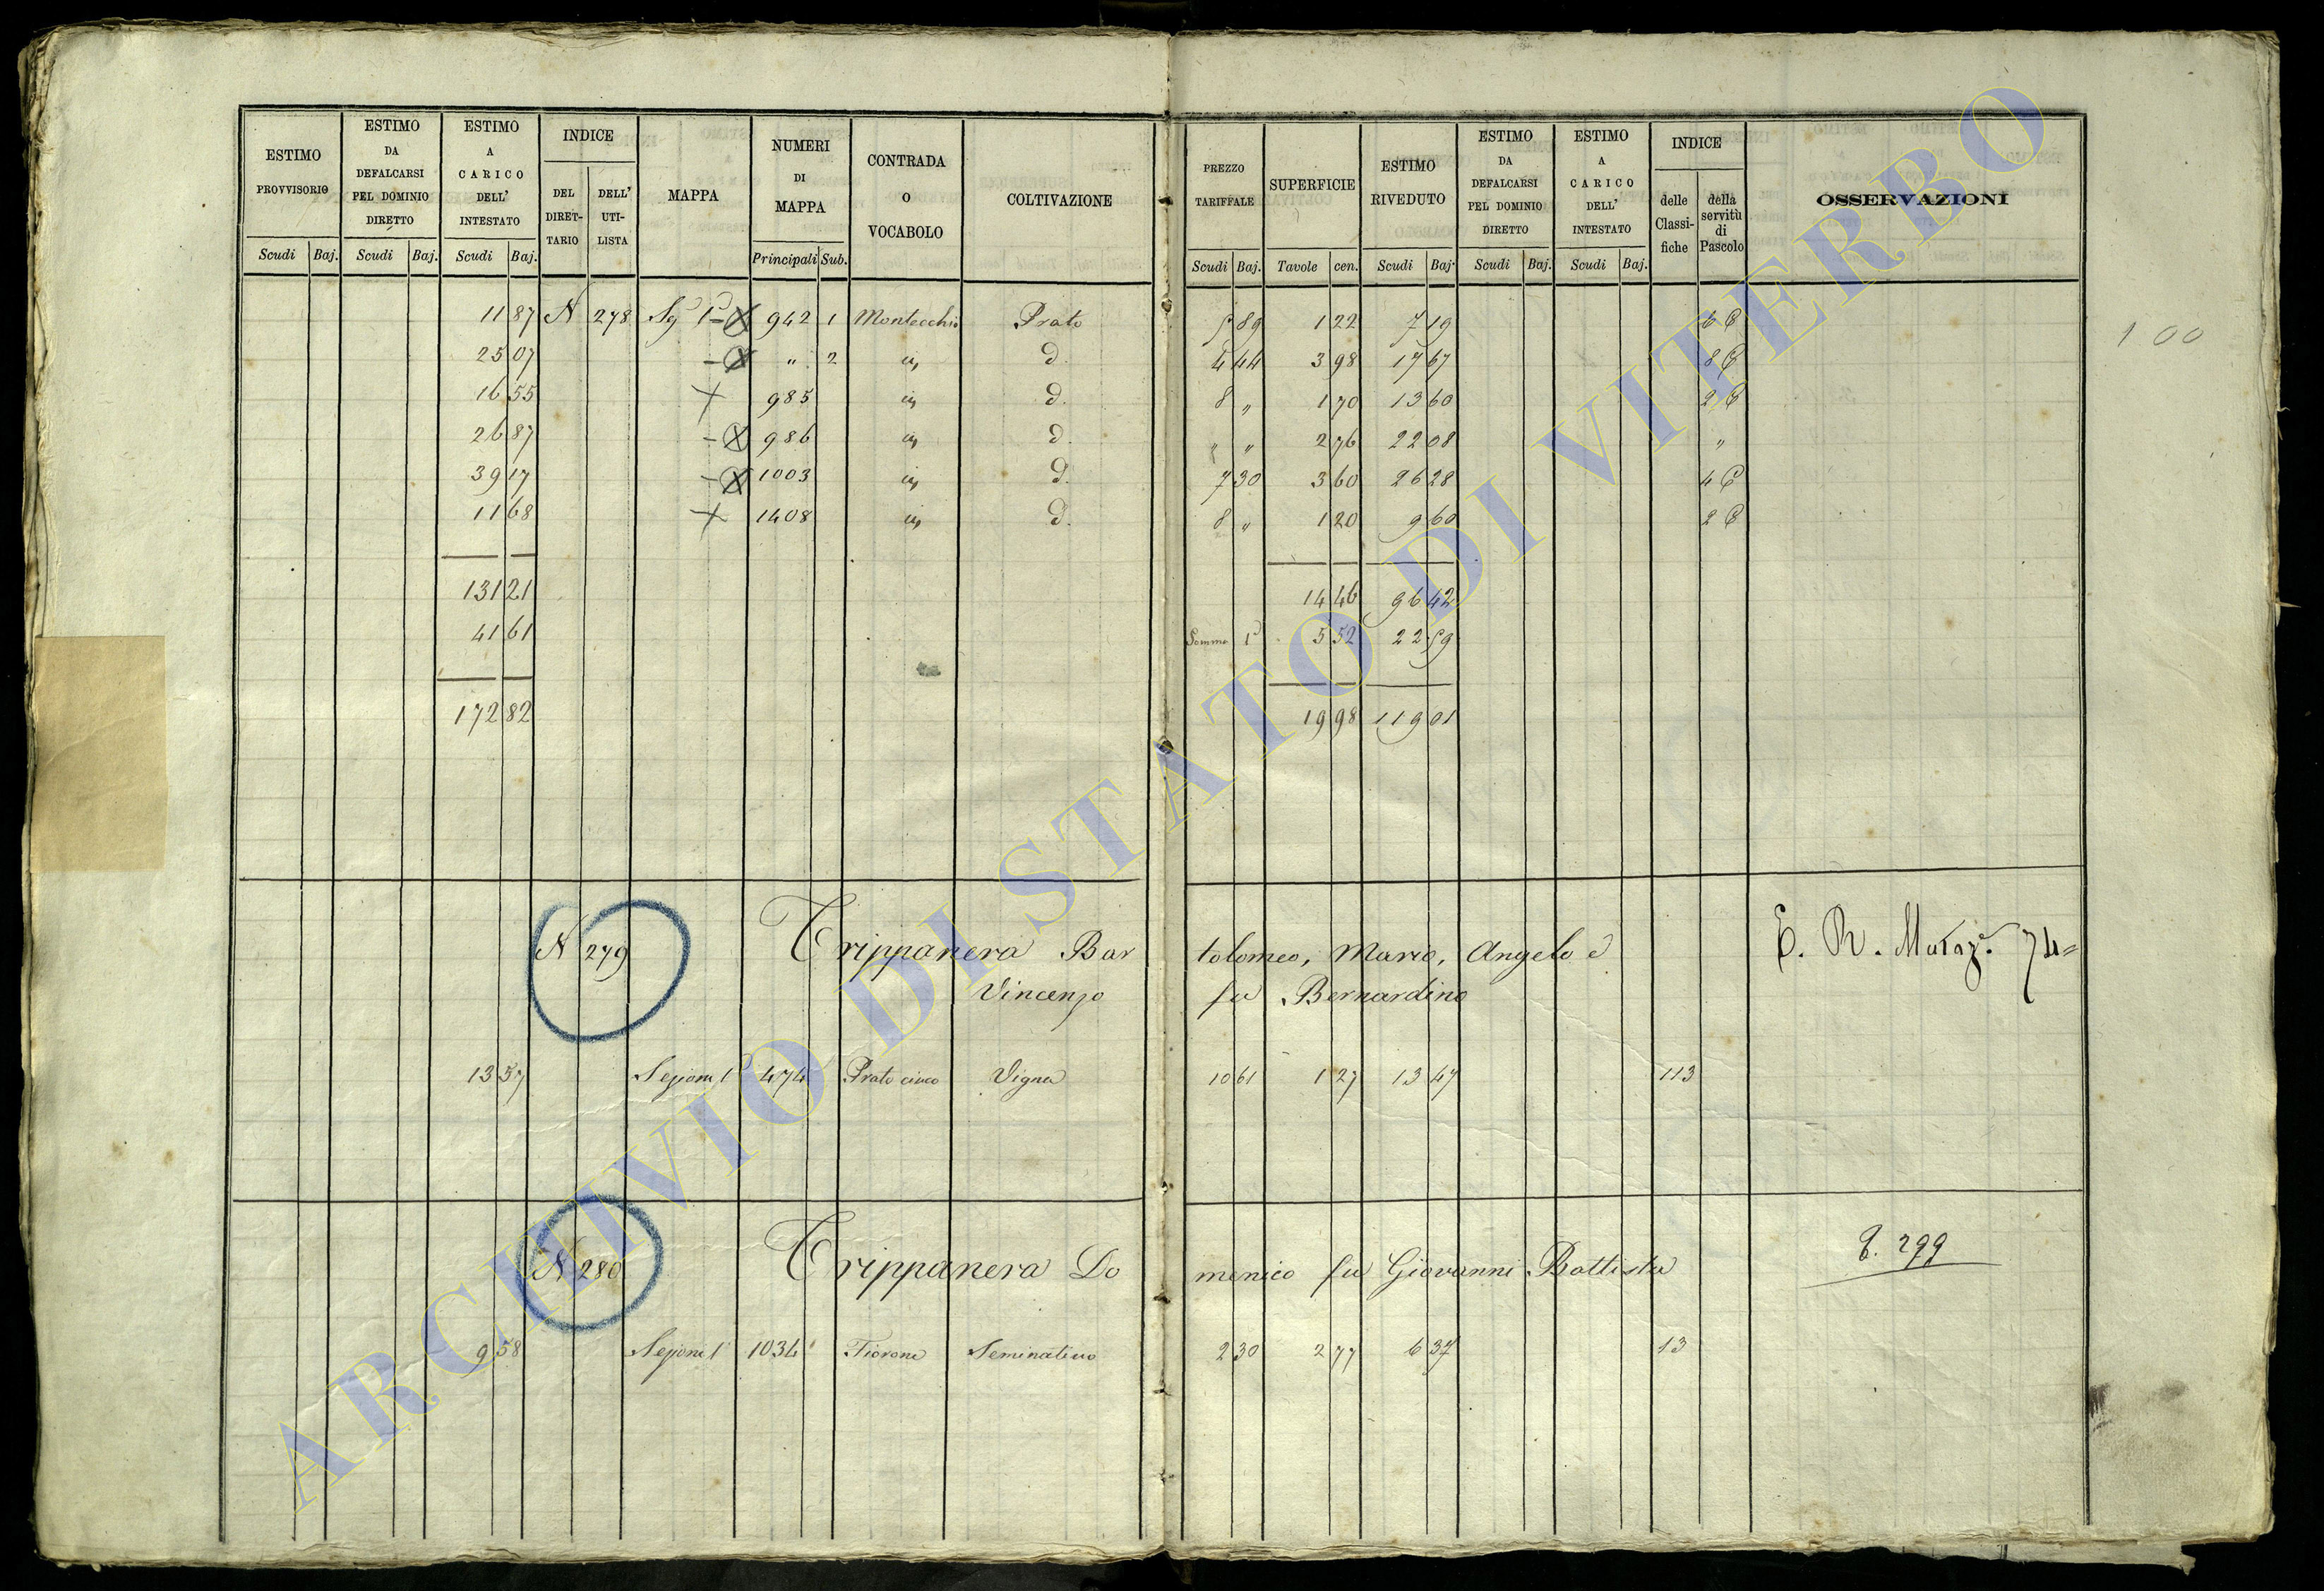 ESTIMO PROVVISORIO Scudi Baj.
ESTIMO DA DEFALCARSI PEL DOMINIO DIRETTO Scudi Baj.
ESTIMO A CARICO DELL' INTESTATO Scudi Baj.
INDICE DEL DIRET- TARIO DELL' UTI- LISTA
MAPPA
NUMERI DI MAPPA Principali Sub.
CONTRADA O VOCABOLO
COLTIVAZIONE
PREZZO TARIFFALE Scudi Baj.
SUPERFICIE Tavole cen.
ESTIMO RIVEDUTO Scudi Baj.
ESTIMO DA DEFALCARSI PEL DOMINIO DIRETTO Scudi Baj.
ESTIMO A CARICO DELL' INTESTATO Scudi Baj.
INDICE delle Classi- fiche della servitù di Pascolo
OSSERVAZIONI
11 87 N 278 942 1 Montecchio Prato 5 89 1 22 7 19 6
25 07 " 2 d. 4 44 3 98 17 67 8
16 55 985 d. 8 " 1 70 13 60 2
26 87 986 d. " " 2 76 22 08 "
39 17 1003 d. 7 30 3 60 26 28 4
11 68 1408 d. 8 " 1 20 9 60 2
100
131 21 14 46 96 42
41 61 Somma 5 52 22 59
172 82 19 98 119 01
N 279 Trippanera Bar tolomeo, Mario, Angelo e
Vincenzo fu Bernardino
74
13 57 Sezione 1 474 Prato cinco Vigna 10 61 1 27 13 47 113
N 280 Trippanera Do menico fu Giovanni Battista
299
9 58 Sezione 1 1034 Fiorone Seminativo 2 30 2 77 6 37 13
ARCHIVIO DI STATO DI VITERBO